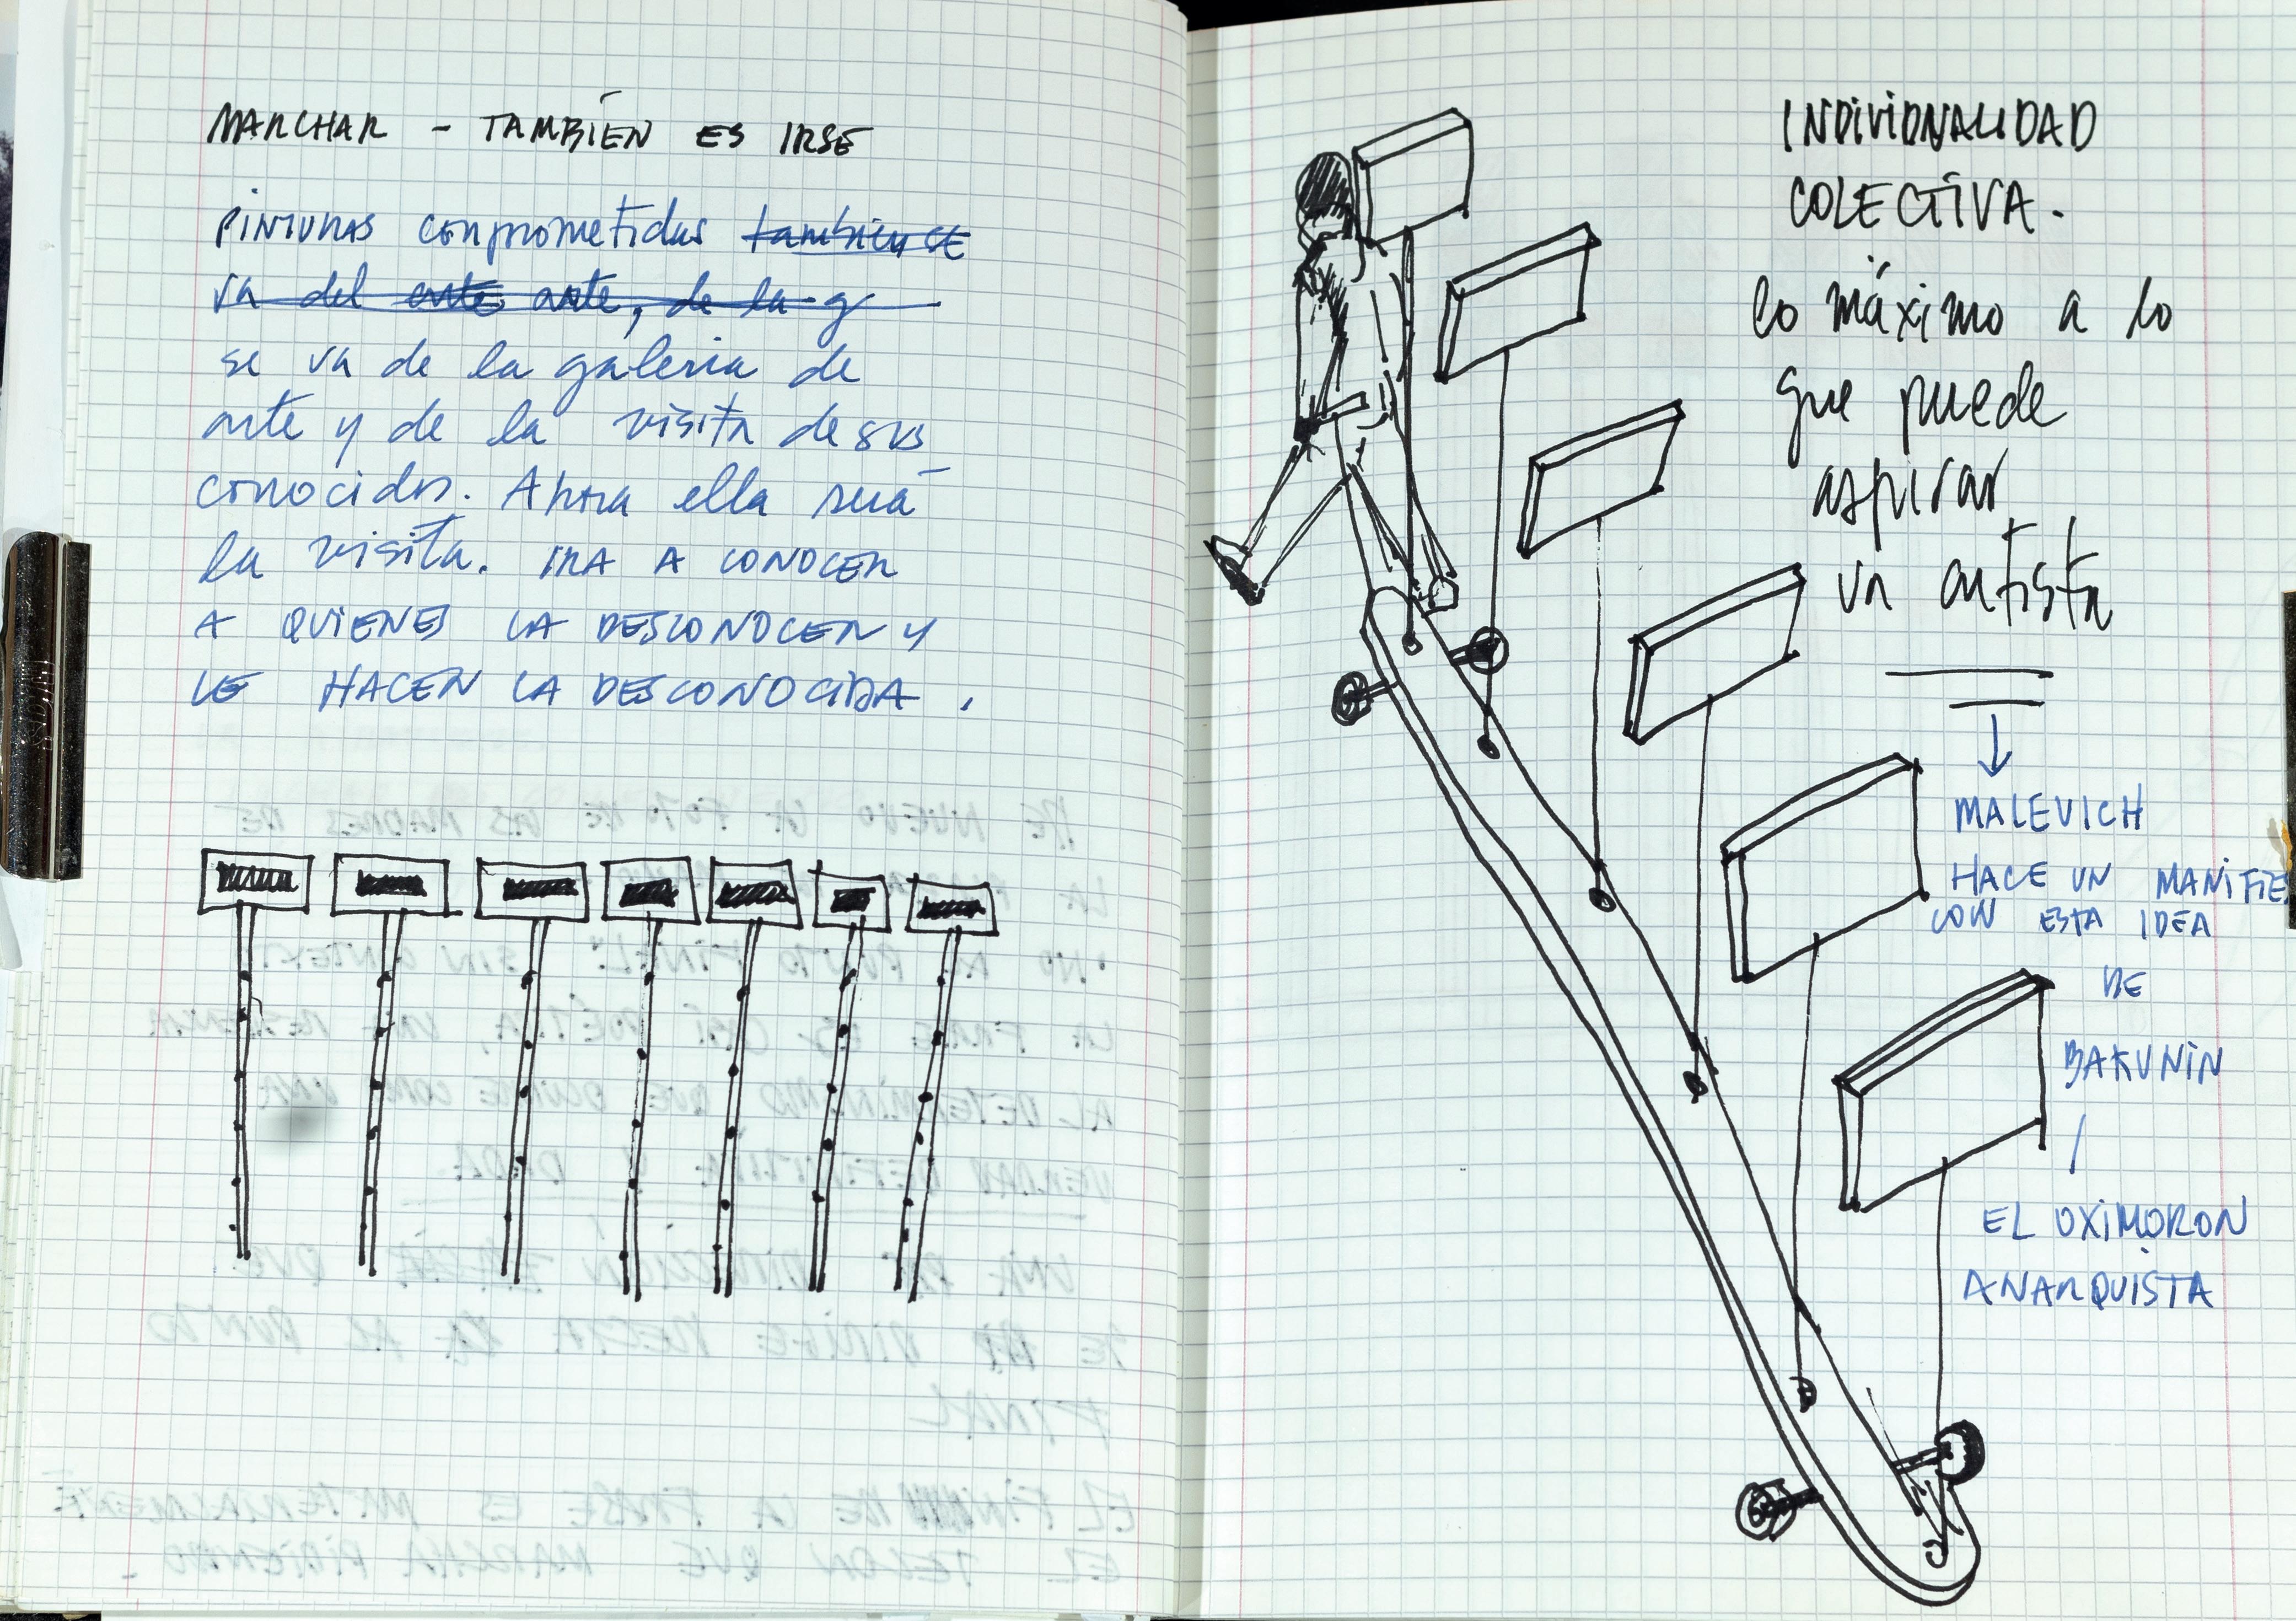 MARCHAR - TAMBIÉN ES IRSE
PINTURAS comprometidas también SE
va del arte arte, de la g
se va de la galeria de
arte y de la visita de sus
conocidos. Ahora ella será
la visita. IRA A CONOCER
A QUIENES LA DESCONOCEN Y
LE HACEN LA DESCONOCIDA.
INDIVIDUALIDAD
COLECTIVA.
lo máximo a lo
que puede
aspirar
un artista
MALEVICH
HACE UN MANIFIES
CON ESTA IDEA
DE
BAKUNIN
/
EL OXIMORON
ANARQUISTA